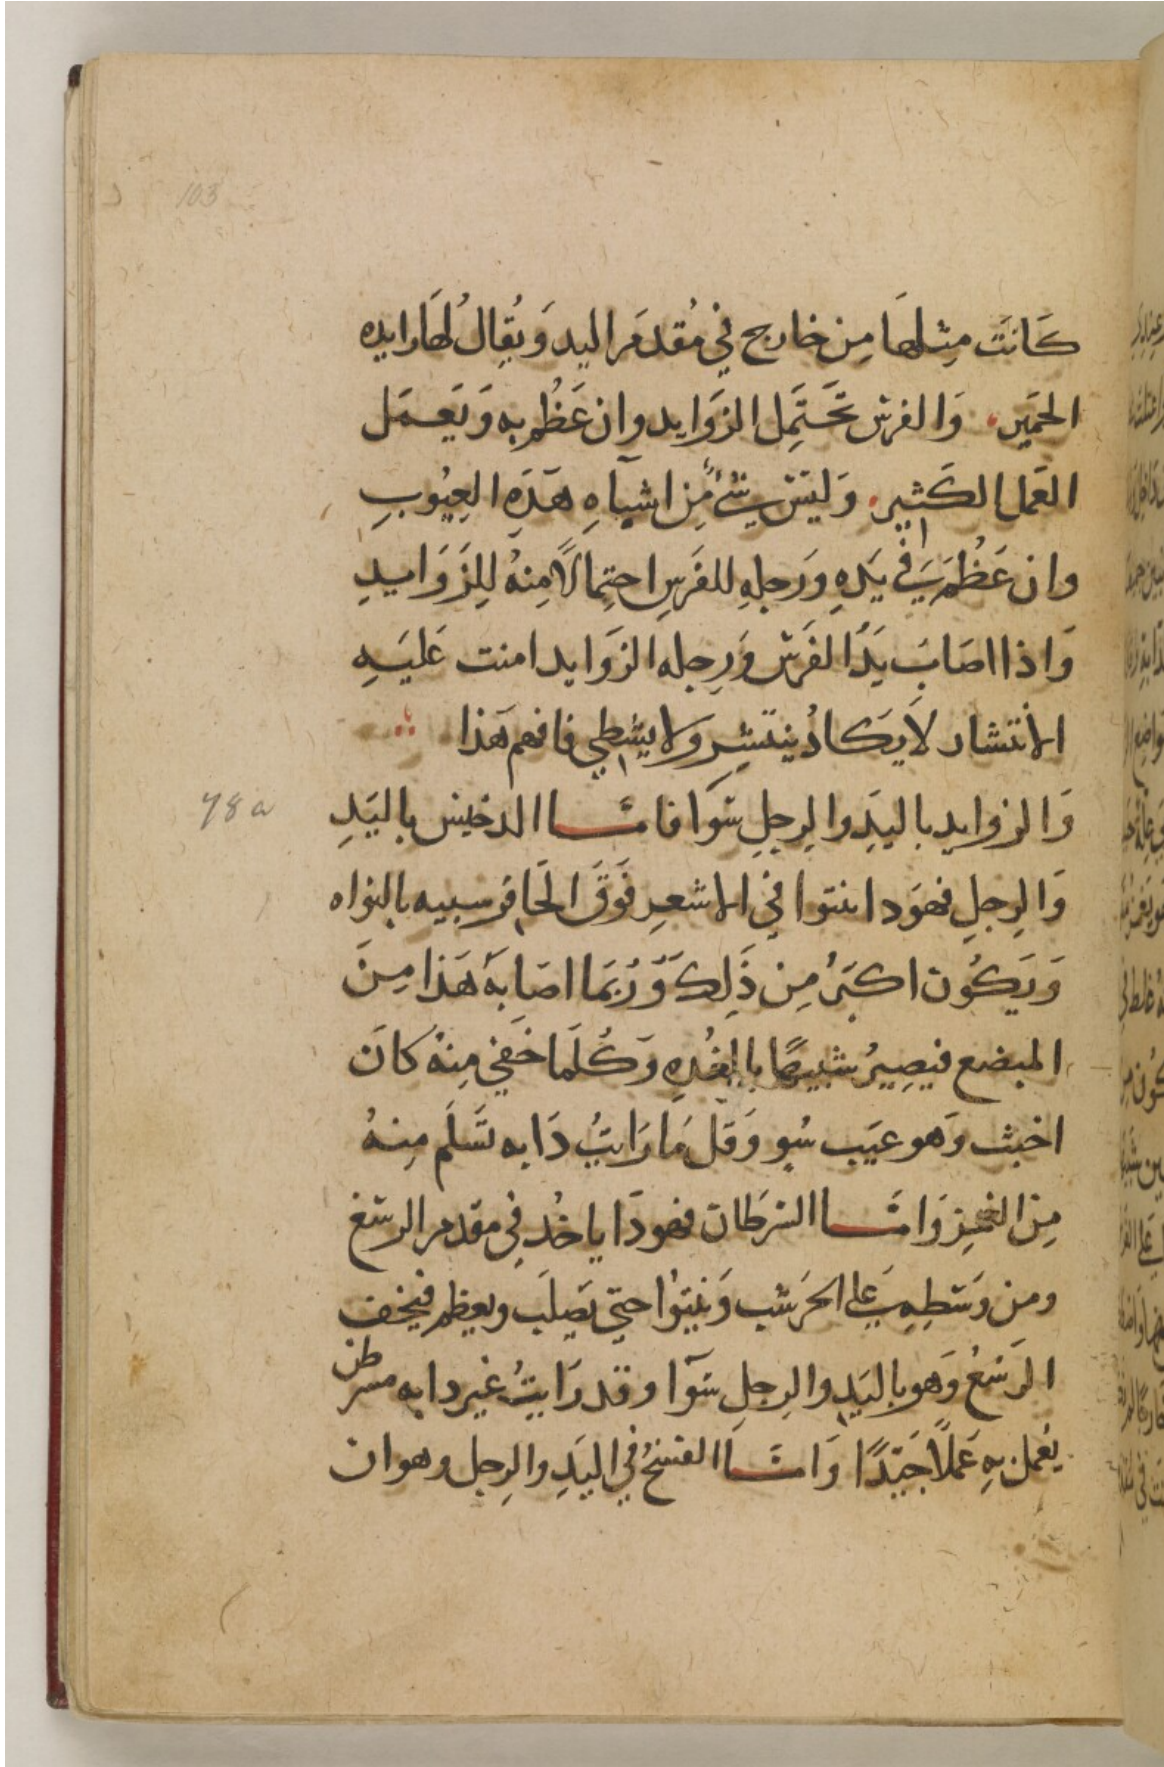 103
كَانَت مِثلهَا مِن خارج في مُقدمَر اليد وَيُقالُ لهَا رايده
الحَمير وَالفرس تَحَتَمِل الزوَايد وان عَظُم به وَيَعمَل
العَمل الكَثير وَليسَ شي مِن اشبَاهِ هَذَهِ العِيُوبِ
وان عَظُمَ في يَدَهِ وَرَجلهِ للفَرَسِ احتِمالاً مِنهُ لِلزَوَايدِ
وَاذا اصَابَ يَدَ الفَرَس وَرِجله الزوَايد امنت عَليَهِ
الانتشار لاَ يَكادُ ينتَشِر وَلا يشطي فافهم هَذا
وَالزوايد باليَدِ والرِجلِ سَوَا فامَّا الدخيس باليَدِ
78a
وَالرِجلِ فهوَ دا ينتوا في الاشعرِ فَوَقَ الحَافر سبيه بالنواه
وَيَكُون اكبَر مِن ذَلِكَ وَرُبَمَا اصَابَهُ هَذا مِنَ
المبضع فيصِيرُ شبيهًا بالغُدهِ وَكُلَمَا خَفي مِنهُ كانَ
اخبث وَهو عيَب سُو وَقَل مَا رَايتُ دَابه تَسَلَم مِنهُ
مِن الغمز وَامَّا السَرَطان فهو دَا ياخُذ في مقدمر الرسَغ
ومن وَسَطِهِ عَلى الحَرَشب وَينتوُا حتي يَصلَب ويعظم فيخف
الرَسغُ وَهو باليَدِ والرجلِ سَوَا وقد رَايتُ غير دابه مسرطن
يُعمل بهِ عَملاً جَيّدًا وَامَّا الفَسخُ في اليَدِ والرِجل وهو ان